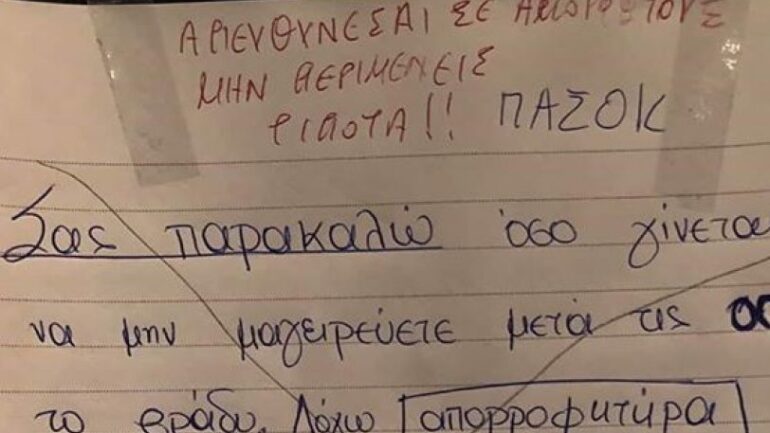 ΑΠΕΥΘΥΝΕΣΑΙ ΣΕ
ΜΗΝ ΠΕΡΙΜΕΝΕΙΣ
ΤΙΠΟΤΑ!! ΠΑΣΟΚ
Σας παρακαλώ όσο γίνετα
να μην μαγειρεύετε μετά τις
το βράδυ. Λόγω απορροφητήρα